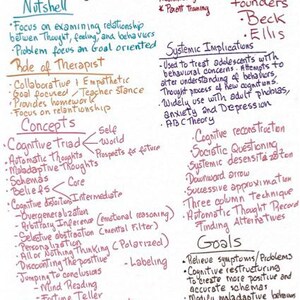 Nutshell
• Focus on examining relationship
between Thought, feeling, and behaviors
• Problem focus an Goal oriented
Role of Therapist
• Collaborative | Empathetic
• Goal focused / Teacher stance
• Provides homework
• Focus on relationship
Concepts
• Cognitive Triad
Self
World
Prospects for future
• Automatic Thoughts
• Maladaptive Thoughts
• Schemas
• Beliefs
Core
Intermediate
• Cognitive distortions
- Overgeneralization
- Arbitrary Inference (emotional reasoning)
- Selective abstraction (mental filter)
- Personalization
- All or Nothing Thinking (Polarized)
- Discounting the positive
- Labeling
- Jumping to conclusions
- Mind Reading
- Fortune Teller
Training
Founders
• Beck
• Ellis
Systemic Implications
• Used to treat adolescents with
behavioral concerns. Attempts to
for understanding of behaviors,
Thought process of new cognitions.
• Widely use with adult phobias,
anxiety and Depression
• ABC Theory
• Cognitive reconstruction
• Socratic Questioning
• Systemic desensitization
• Downward arrow
• Successive approximation
• Three column technique
• Automatic Thought Record
• Finding Alternatives
Goals
• Relieve symptoms/Problems
• Cognitive restructuring
to create more positive and
accurate schemas
• Modify maladaptive behaviors